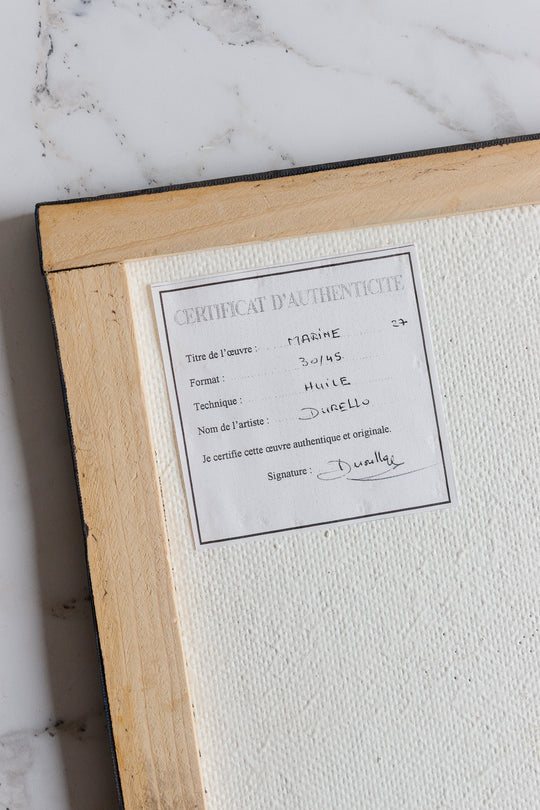 CERTIFICAT D'AUTHENTICITE
Titre de l'œuvre : MARINE 27
Format : 30/45
Technique : HUILE
Nom de l'artiste : DURELLO
Je certifie cette œuvre authentique et originale.
Signature : Durello